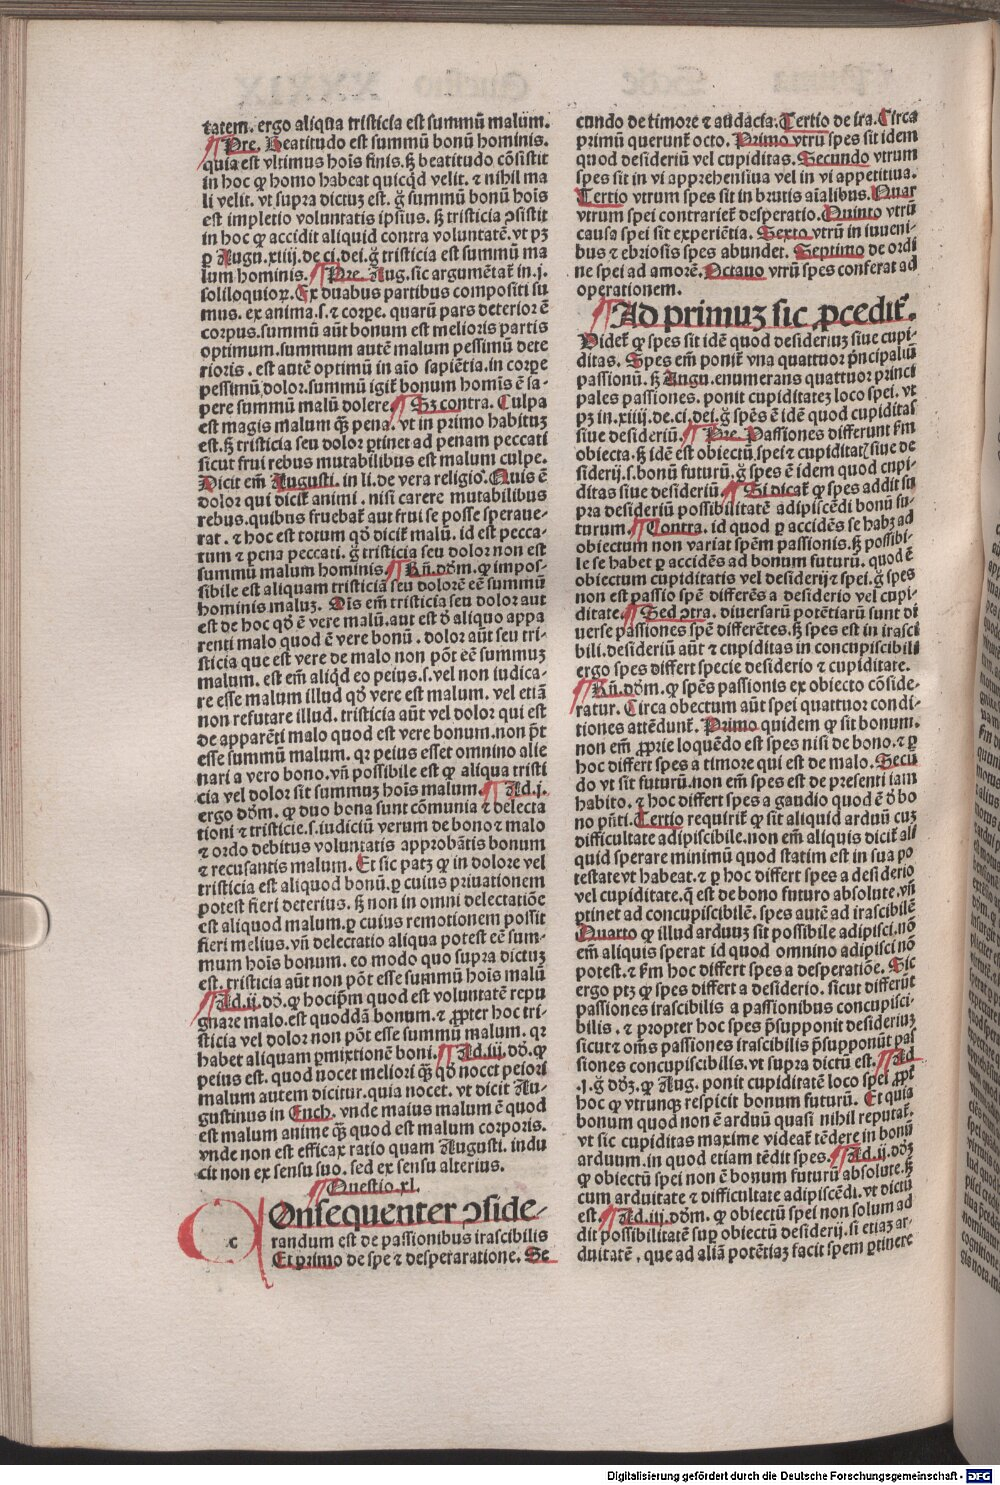 tatem. ergo aliqua tristicia est summū malum.
¶ Pre. Beatitudo est summū bonū hominis.
quia est vltimus hoīs finis. sꝫ beatitudo cōsistit
in hoc ꝙ homo habeat quicqͥd velit. ⁊ nihil ma
li velit. vt supra dictuꝫ est. g̊ summū bonū hoīs
est impletio voluntatis ipsius. sꝫ tristicia ↄsistit
in hoc ꝙ accidit aliquid contra voluntatē. vt pꝫ
ꝑ Augu. xiiij. de ci. dei. g̊ tristicia est summū ma
lum hominis. ¶ Pre. Aug. sic argumētat᷑ in .j.
soliloquioꝝ. Ex duabus partibus compositi su
mus. ex anima .s. ⁊ corpe. quarū pars deterior ē
corpus. summū aūt bonum est melioris partis
optimum. summum autē malum pessimū dete
rioris. est autē optimū in aīo sapiētia. in corpe
pessimū dolor. summū igit᷑ bonum homīs ē sa-
pere summū malū dolere. ¶ Sꝫ contra. Culpa
est magis malum qꝫ̄ pena. vt in primo habituꝫ
est. sꝫ tristicia seu dolor ꝑtinet ad penam peccati
sicut frui rebus mutabilibus est malum culpe.
Dicit em̄ Augusti. in li. de vera religiōe. Quis ē
dolor qui dicit᷑ animi. nisi carere mutabilibus
rebus. quibus fruebat᷑ aut frui se posse speraue-
rat. ⁊ hoc est totum qd̄ dicit᷑ malū. id est pecca-
tum ⁊ pena peccati. g̊ tristicia seu dolor non est
summū malum hominis. ¶ Rn̄. dōm. ꝙ impos-
sibile est aliquam tristiciā seu dolorē eē summū
hominis maluꝫ. Oīs em̄ tristicia seu dolor aut
est de hoc qd̄ ē vere malū. aut est d̄ aliquo appa
renti malo quod ē vere bonū. dolor aūt seu tri-
sticia que est vere de malo non pōt eē summuꝫ
malum. est em̄ aliqͥd eo peius .s. vel non iudica-
re esse malum illud qd̄ vere est malum. vel etiā
non refutare illud. tristicia aūt vel dolor qui est
de apparēti malo quod est vere bonum. non pōt
esse summū malum. qꝛ peius esset omnino alie
nari a vero bono. vn̄ possibile est ꝙ aliqua tristi
cia vel dolor sit summuꝫ hoīs malum. ¶ Ad .j.
ergo dōm. ꝙ duo bona sunt cōmunia ⁊ delecta
tioni ⁊ tristicie .s. iudiciū verum de bono ⁊ malo
⁊ ordo debitus voluntatis approbātis bonum
⁊ recusantis malum. Et sic patꝫ ꝙ in dolore vel
tristicia est aliquod bonū. ꝑ cuius priuationem
potest fieri deterius. sꝫ non in omni delectatiōe
est aliquod malum. ꝑ cuius remotionem possit
fieri melius. vn̄ delectatio aliqua potest eē sum-
mum hoīs bonum. eo modo quo supra dictuꝫ
est. tristicia aūt non pōt esse summū hoīs malū
¶ Ad .ij. dō. ꝙ hocip̄m quod est voluntatē repu
gnare malo. est quoddā bonum. ⁊ ꝓpter hoc tri-
sticia vel dolor non pōt esse summū malum. qꝛ
habet aliquam ꝑmixtionē boni. ¶ Ad .iij. dō. ꝙ
peius est. quod nocet meliori qꝫ̄ qd̄ nocet peiori
malum autem dicitur. quia nocet. vt dicit Au-
gustinus in Ench. vnde maius malum ē quod
est malum anime qꝫ̄ quod est malum corporis.
vnde non est efficax ratio quam Augusti. indu
cit non ex sensu suo. sed ex sensu alterius.
¶ Questio .xl.
c
Onsequenter ↄside-
randum est de passionibus irascibilis
Et primo de spe ⁊ desperaratione. Se
cundo de timore ⁊ audacia. Tertio de ira. Circa
primū querunt᷑ octo. Primo vtrū spes sit idem
quod desideriū vel cupiditas. Secundo vtrum
spes sit in vi apprehensiua vel in vi appetitiua.
Tertio vtrum spes sit in brutis aīalibus. Quar
vtrum spei contrariet᷑ desperatio. Quinto vtrū
causa spei sit experiētia. Sexto vtrū in iuueni-
bus ⁊ ebriosis spes abundet. Septimo de ordi
ne spei ad amorē. Octauo vtrū spes conferat ad
operationem.
¶ Ad primuꝫ sic ꝓcedit᷑.
Videt᷑ ꝙ spes sit idē quod desideriuꝫ siue cupi-
ditas. Spes em̄ ponit᷑ vna quattuor pͥncipaliū
passionū. sꝫ Augu. enumerans quattuor princi
pales passiones. ponit cupiditateꝫ loco spei. vt
pꝫ in .xiiij. de. ci. dei. g̊ spēs ē idē quod cupiditas
siue desideriū. ¶ Pre. Passiones differunt fm̄
obiecta. sꝫ idē est obiectū spei ⁊ cupiditatꝭ siue de
siderij .s. bonū futurū. g̊ spes ē idem quod cupi-
ditas siue desideriū. ¶ Si dicat᷑ ꝙ spes addit su
pra desideriū possibilitatē adipiscēdi bonū fu-
turum. ¶ Contra. id quod ꝑ accidēs se habꝫ ad
obiectum non variat spēm passionis. sꝫ possibi-
le se habet ꝑ accidēs ad bonum futurū. quod ē
obiectum cupiditatis vel desiderij ⁊ spei. g̊ spes
non est passio spē differēs a desiderio vel cupi-
ditate. ¶ Sed ↄtra. diuersarū potētiarū sunt di
uerse passiones spē differētes. sꝫ spes est in irasci
bili. desideriū aūt ⁊ cupiditas in concupiscibili
ergo spes differt specie desiderio ⁊ cupiditate.
¶ Rn̄. dōm. ꝙ spēs passionis ex obiecto cōside-
ratur. Circa obectum aūt spei quattuor condi-
tiones attēdunt᷑. Primo quidem ꝙ sit bonum.
non em̄ ꝓprie loquēdo est spes nisi de bono. ⁊ ꝑ
hoc differt spes a timore qui est de malo. Secū
do vt sit futurū. non em̄ spes est de presenti iam
habito. ⁊ hoc differt spes a gaudio quod ē d̄ bo
no pn̄ti. Tertio requirit᷑ ꝙ sit aliquid arduū cuꝫ
difficultate adipiscibile. non em̄ aliquis dicit᷑ ali
quid sperare minimū quod statim est in sua po
testate vt habeat. ⁊ ꝑ hoc differt spes a desiderio
vel cupiditate. q̄ est de bono futuro absolute. vn̄
ꝑtinet ad concupiscibilē. spes autē ad irascibilē
Quarto ꝙ illud arduuꝫ sit possibile adipisci. nō
em̄ aliquis sperat id quod omnino adipisci nō
potest. ⁊ fm̄ hoc differt spes a desperatiōe. Sic
ergo ptꝫ ꝙ spes differt a desiderio. sicut differūt
passiones irascibilis a passionibus concupisci-
bilis. ⁊ propter hoc spes p̄supponit desideriuꝫ
sicut ⁊ oēs passiones irascibilis p̄supponūt pas
siones concupiscibilis. vt supra dictū est. ¶ Ad
.j. g̊ dōꝫ. ꝙ Aug. ponit cupiditatē loco spei ꝓpt᷑
hoc ꝙ vtrunqꝫ respicit bonum futurū. Et quia
bonum quod non ē arduū quasi nihil reputat᷑.
vt sic cupiditas maxime videat᷑ tēdere in bonū
arduum. in quod etiam tēdit spes. ¶ Ad .ij. dōꝫ
ꝙ obiectū spei non ē bonum futurū absolute. sꝫ
cum arduitate ⁊ difficultate adipiscēdi. vt dictū
est. ¶ Ad .iij. dōm. ꝙ obiectū spei non solum ad
dit possibilitatē suꝑ obiectū desiderij. si etiaꝫ ar-
duitatē. que ad aliā potētiaꝫ facit spem ꝑtinere
Digitalisierung gefördert durch die Deutsche Forschungsgemeinschaft - DFG